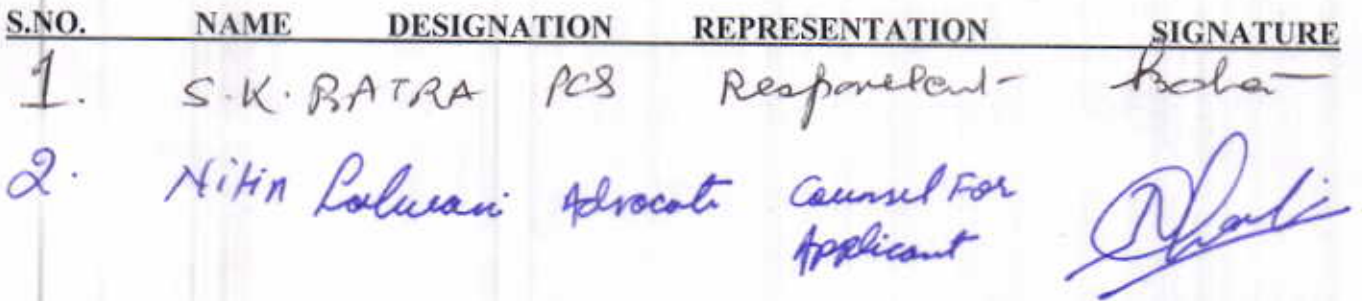 S.NO. NAME DESIGNATION REPRESENTATION SIGNATURE
1. S.K. BATRA PCS Respondent
2. Nitin Lalwani Advocate Counsel For
Applicant